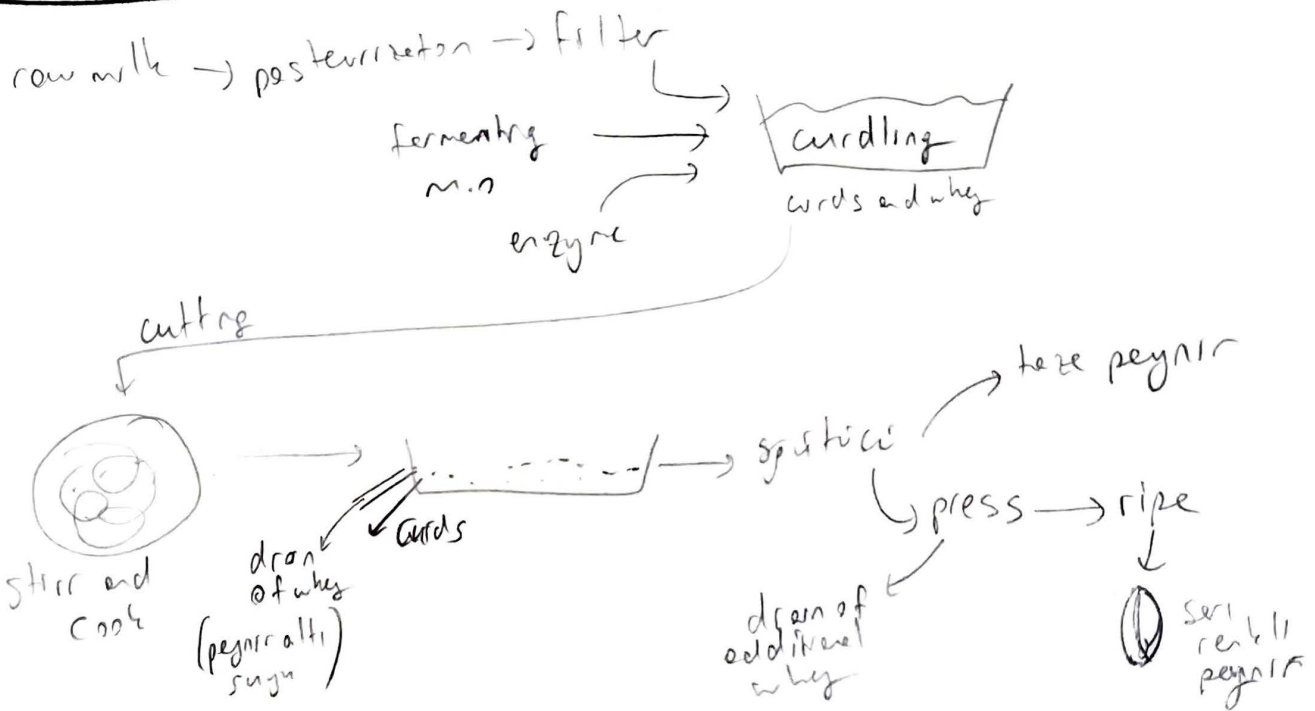 raw milk → pasteurization → filter
fermenting
m.o
enzyme
curdling
curds and whey
cutting
stirr and
cook
drain
of whey
(peynir altı
suyu)
curds
taze peynir
press → ripe
drain of
additional
whey
sarı
renkli
peynir